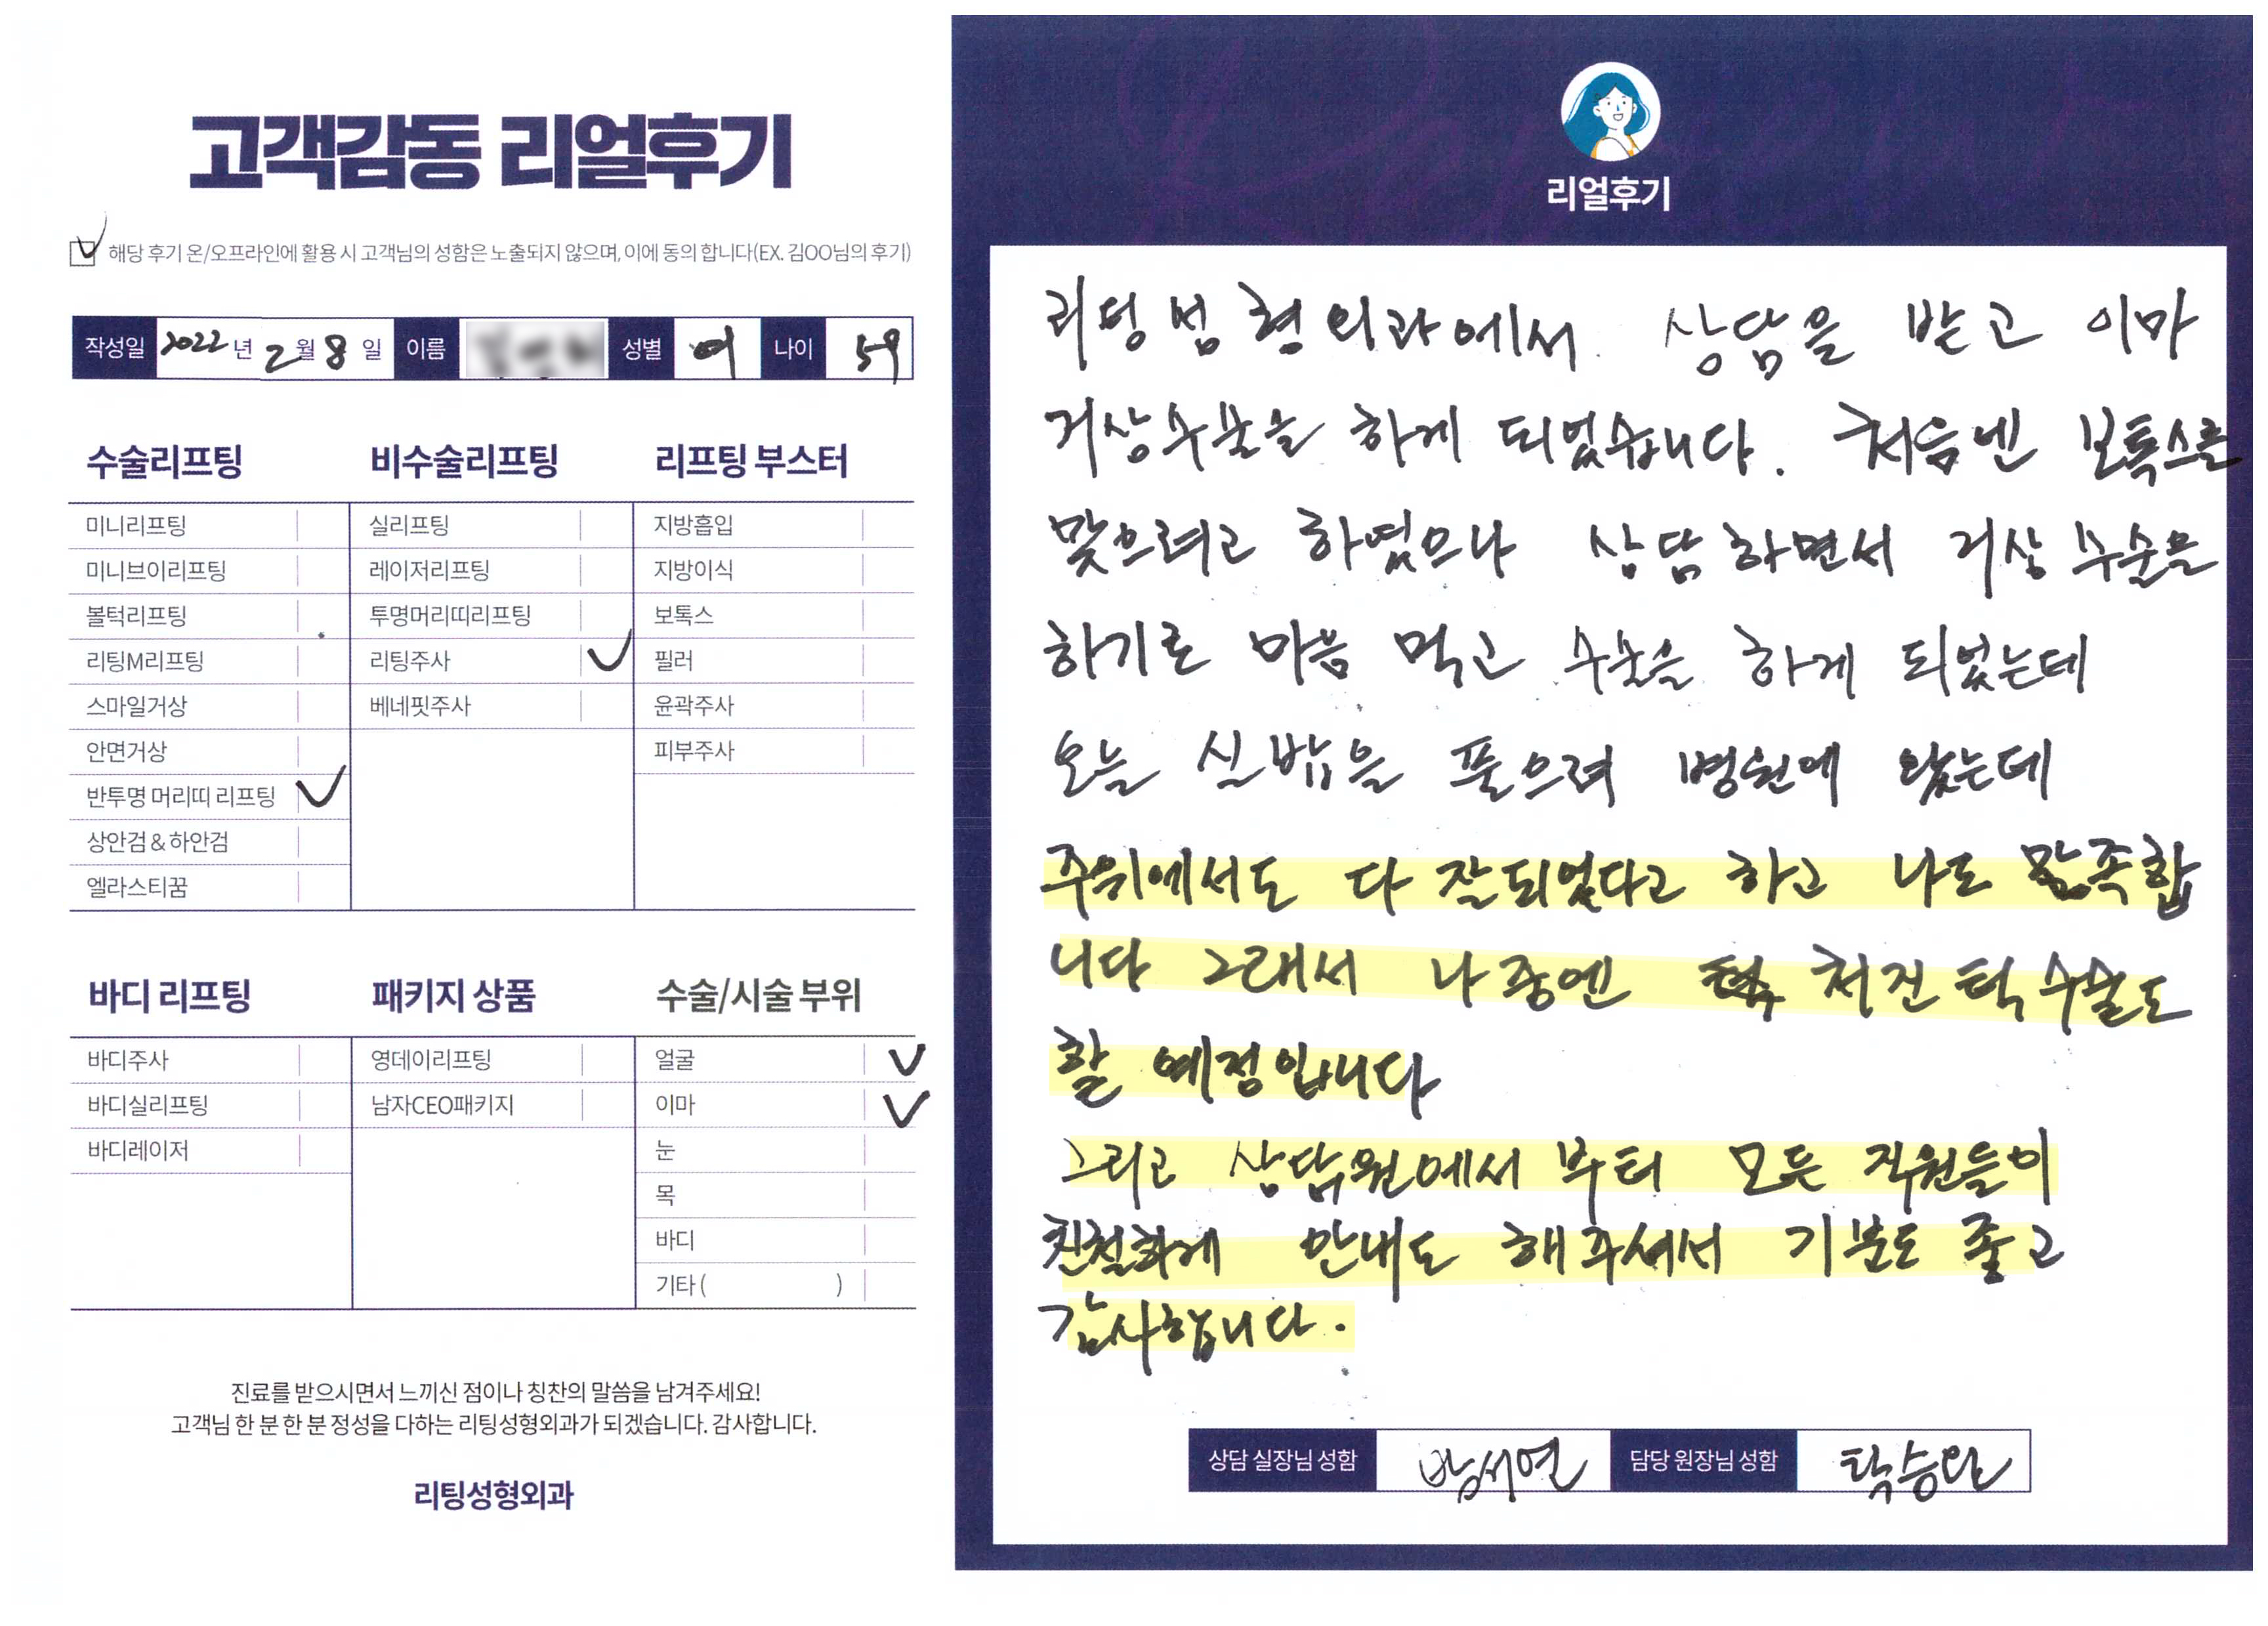 고객감동 리얼후기
해당 후기 온/오프라인에 활용 시 고객님의 성함은 노출되지 않으며, 이에 동의 합니다(EX. 김OO님의 후기)
작성일 2022년 2월 8일 이름 성별 여 나이 59
수술리프팅
미니리프팅
미니브이리프팅
볼턱리프팅
리팅M리프팅
스마일거상
안면거상
반투명 머리띠 리프팅
상안검 & 하안검
엘라스티꿈
비수술리프팅
실리프팅
레이저리프팅
투명머리띠리프팅
리팅주사
베네핏주사
리프팅 부스터
지방흡입
지방이식
보톡스
필러
윤곽주사
피부주사
바디 리프팅
바디주사
바디실리프팅
바디레이저
패키지 상품
영데이리프팅
남자CEO패키지
수술/시술 부위
얼굴
이마
눈
목
바디
기타 ( )
진료를 받으시면서 느끼신 점이나 칭찬의 말씀을 남겨주세요!
고객님 한 분 한 분 정성을 다하는 리팅성형외과가 되겠습니다. 감사합니다.
리팅성형외과
리얼후기
리팅성형외과에서 상담을 받고 이마
거상수술을 하게 되었습니다. 처음엔 보톡스를
맞으려고 하였으나 상담하면서 거상 수술을
하기로 마음 먹고 수술을 하게 되었는데
오늘 실밥을 풀으려 병원에 왔는데
주위에서도 다 잘되었다고 하고 나도 만족합
니다 그래서 나중엔 처진 턱 수술도
할 예정입니다
그리고 상담원에서 부터 모든 직원들이
친절하게 안내도 해주셔서 기분도 좋고
감사합니다.
상담 실장님 성함 박서연 담당 원장님 성함 탁승완